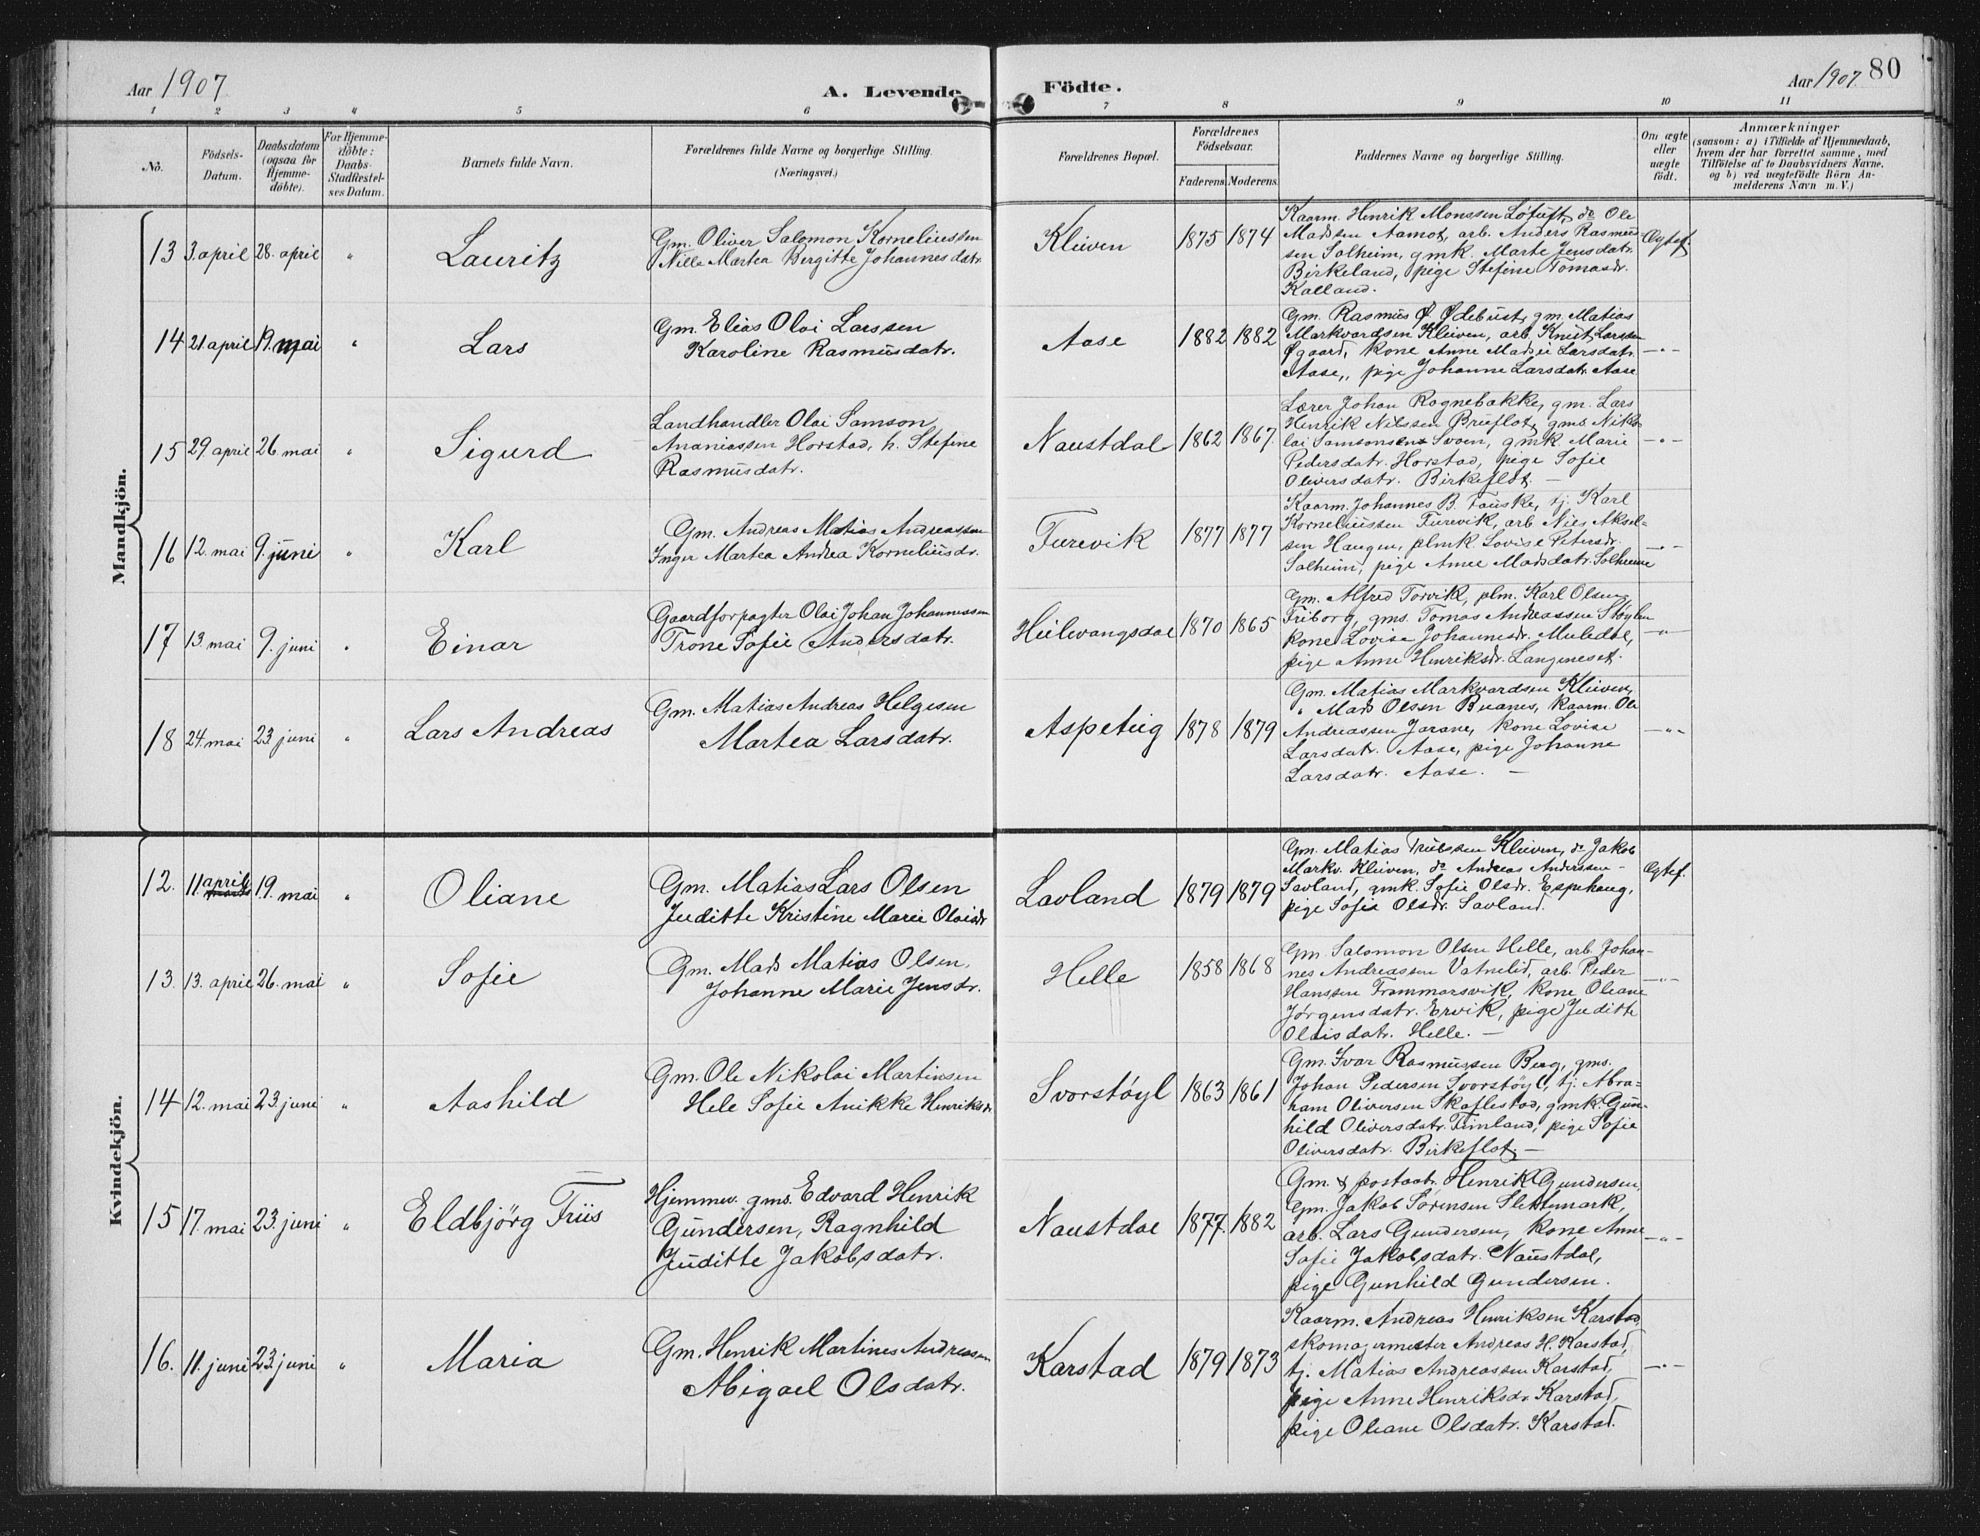 Aar 1907
A. Levende Födte.
Aar 1907. 80
1 2 3 4 5 6 7 8 9 10 11
No.
Födsels-
Datum.
Daabsdatum
(ogsaa for
Hjemme-
döbte).
For Hjemme-
döbte:
Daabs-
Stadfæstel-
ses Datum.
Barnets fulde Navn.
Forældrenes fulde Navne og borgerlige Stilling.
(Næringsvei.)
Forældrenes Bopæl.
Forældrenes
Födselsaar.
Faderens. Moderens.
Faddernes Navne og borgerlige Stilling.
Om ægte
eller
uægte
födt.
Anmærkninger
(saasom: a) i Tilfælde af Hjemmedaab,
hvem der har forrettet samme, med
Tilföielse af to Daabsvidners Navne,
og b) ved uægtefödte Börn An-
melderens Navn m. V.)
Mandkjön.
13 3. april 28. april " Lauritz
Gm. Oliver Salomon Korneliussen
Nille Martea Bergitte Johannesdatr.
Kleiven 1875 1874
Kaarm. Henrik Monssen Løtuft, do Ole
Madssen Aamot, arb. Anders Rasmus-
sen Solheim, gmk. Marte Jensdatr.
Birkeland, pige Stefine Tomasdr.
Kalland.
Ægtef.
14 21 april 19. mai " Lars
Gm. Elias Olai Larssen
Karoline Rasmusdatr.
Aase 1882 1882
Gm. Rasmus Ø. Ødebust, gm. Matias
Markvardsen Kleiven, arb. Knut Larssen
Øgaard, kone Anne Larsdatr.
Aase,, pige Johanne Larsdatr. Aase
—"—
15 29. april 26. mai " Sigurd
Landhandler Olai Samson
Ananiassen Horstad, h. Stefine
Rasmusdatr.
Naustdal 1862 1867.
Lærer Johan Rognebakke, gm. Lars
Henrik Nilssen Bruflot, gms. Niko-
lai Samsonsen Svoen, gmk. Marie
Pedersdatr. Horstad, pige Sofie
Oliversdatr. Birkeflot. —
—"—
16 12. mai 9. juni " Karl
Gm. Andreas Matias Andreassen
Inger Martea Andrea Korneliusdr.
Furevik 1877 1877
Kaarm. Johannes B. Fauske, tj. Karl
Korneliussen Furevik, arb. Nies Aksel-
sen Haugen, plmk. Lovise Petersdr.
Solheim, pige Anne Madsdatr. Solheim
—"—
17 13. mai 9. juni " Einar
Gaardforpagter Olai Johan Johannessen
Trone Sofie Andersdatr.
1870 1865
Gm. Alfred Torvik, plm. Karl Olsen
Friborg, gms. Tomas Andreassen Støylen
kone Lovise Johannesdr. Muledal,
pige Anne Henriksdr. Langeneset.
—"—
18 24. mai 23 juni " Lars Andreas
Gm. Matias Andreas Helgesen
Martea Larsdatr.
Aspetug 1878 1879
Gm. Matias Markvardsen Kleiven,
" Mads Olsen Buanes, kaarm. Ole
Andreassen Jarane, kone Lovise
Larsdatr. Aase, pige Johanne
Larsdatr. Aase. —
—"—
Kvindekjön.
12. 11. april 19. mai " Oliane
Gm. Matias Lars Olsen
Juditte Kristine Marie Olaisdr.
Savland 1879 1879
Gm. Matias Kleiven, do Jakob
Markv. Kleiven, do Andreas Anderssen
Savland, gmk. Sofie Olsdr. Espehaug,
pige Sofie Olsdr. Savland.
Ægtef.
13. 13. april 26. mai " Sofie
Gm. Mads Matias Olsen.
Johanne Marie Jensdr.
Helle 1858 1868
Gm. Salomon Olsen Helle, arb. Johan-
nes Andreassen Vatnelid, arb. Peder
Hanssen Frammarsvik, kone Oleane
Jørgensdatr. Ervik, pige Juditte
Olaisdatr. Helle. —
—"—
14 12. mai 23. juni " Aashild
Gm. Ole Nikolai Martinsen
Hele Sofie Anikke Henriksdr.
Svorstøyl 1863 1861
Gm. Ivar Rasmussen Berg, gms.
Johan Pedersen Svorstøyl, tj. Abra-
ham Oliversen Skaflestad, gmk. Gun-
hild Oliversdatr. Fimland, pige Sofie
Oliversdatr. Birkeflot —
15 17. mai 23. juni " Eldbjörg Friis
Hjemmev. gms. Edvard Henrik
Gundersen, Ragnhild
Juditte Jakobsdatr.
Naustdal 1877. 1882
Gm. & postaabr. Henrik Gundersen,
Gm. Jakob Sørensen Slettemark,
arb. Lars Gundersen, kone Anne
Sofie Jakobsdatr. Naustdal,
pige Gunhild Gundersen.
—"—
16. 11. juni 23. juni " Maria
Gm. Henrik Martines Andreassen
Abigael Olsdatr.
Karstad 1879 1873
Kaarm. Andreas Henriksen Karstad,
skomagermester Andreas H. Karstad,
tj. Matias Andreassen Karstad,
pige Anne Henriksdr. Karstad,
pige Oleane Olsdatr. Karstad.
—"—